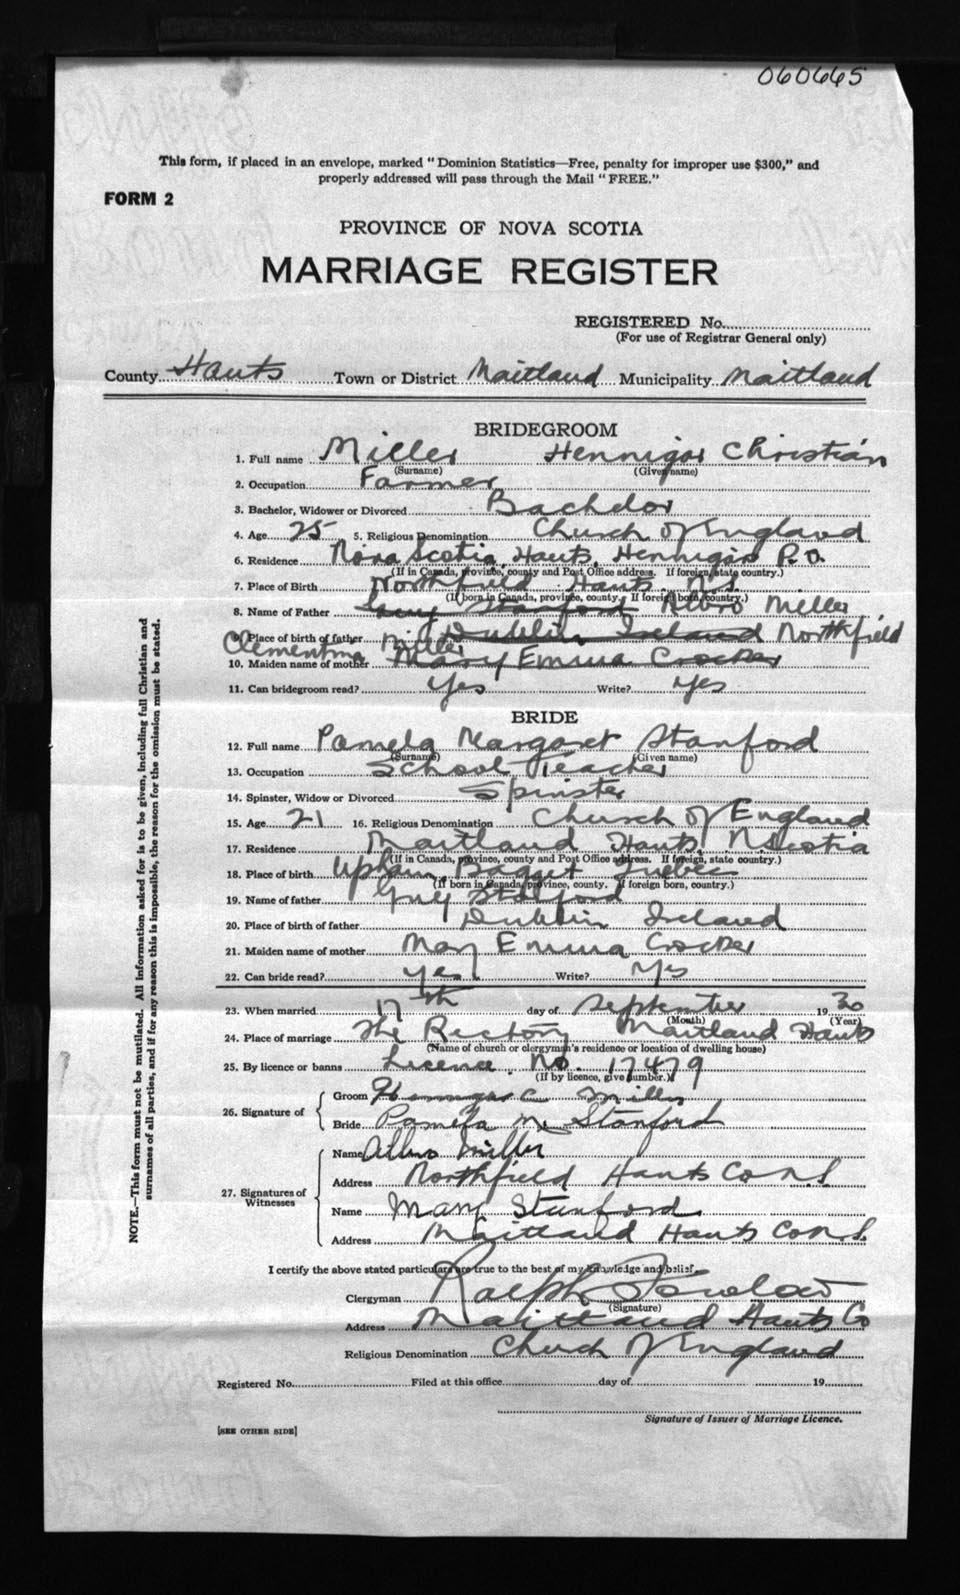 060665
This form, if placed in an envelope, marked "Dominion Statistics—Free, penalty for improper use $300," and
properly addressed will pass through the Mail "FREE."
FORM 2
PROVINCE OF NOVA SCOTIA
MARRIAGE REGISTER
REGISTERED No.
(For use of Registrar General only)
County Hants Town or District Maitland Municipality Maitland
BRIDEGROOM
1. Full name Miller Hennigar Christian
(Surname) (Given name)
2. Occupation Farmer
3. Bachelor, Widower or Divorced Bachelor
4. Age 25 5. Religious Denomination Church of England
6. Residence Nova Scotia, Hants, Hennigar P.O.
(If in Canada, province, county and Post Office address. If foreign, state country.)
7. Place of Birth Northfield Hants N.S.
(If born in Canada, province, county. If foreign born, country.)
8. Name of Father Guy Stanford Albro Miller
9. Place of birth of father Dublin Ireland Northfield
Clementina Miller
10. Maiden name of mother Mary Emma Crocker
11. Can bridegroom read? Yes Write? Yes
BRIDE
12. Full name Pamela Margaret Stanford
(Surname) (Given name)
13. Occupation School Teacher
14. Spinster, Widow or Divorced Spinster
15. Age 21 16. Religious Denomination Church of England
17. Residence Maitland Hants N. Scotia
(If in Canada, province, county and Post Office address. If foreign, state country.)
18. Place of birth Quebec
(If born in Canada, province, county. If foreign born, country.)
19. Name of father Guy
20. Place of birth of father Dublin Ireland
21. Maiden name of mother Mary Emma Crocker
22. Can bride read? yes Write? Yes
23. When married 17th day of September 1930
(Month) (Year)
24. Place of marriage The Rectory Maitland Hants
(Name of church or clergyman's residence or location of dwelling house)
25. By licence or banns Licence. No. 17479
(If by licence, give number.)
26. Signature of Groom Hennigar C Miller
Bride Pamela M. Stanford
27. Signatures of Witnesses Name Albro Miller
Address Northfield Hants Co N.S.
Name Mary Stanford
Address Maitland Hants Co N.S.
I certify the above stated particulars are true to the best of my knowledge and belief.
Clergyman Ralph Fowlow
(Signature)
Address Maitland Hants Co
Religious Denomination Church of England
Registered No. Filed at this office day of 19
Signature of Issuer of Marriage Licence.
[SEE OTHER SIDE]
NOTE.—This form must not be mutilated. All information asked for is to be given, including full Christian and
surnames of all parties, and if for any reason this is impossible, the reason for the omission must be stated.